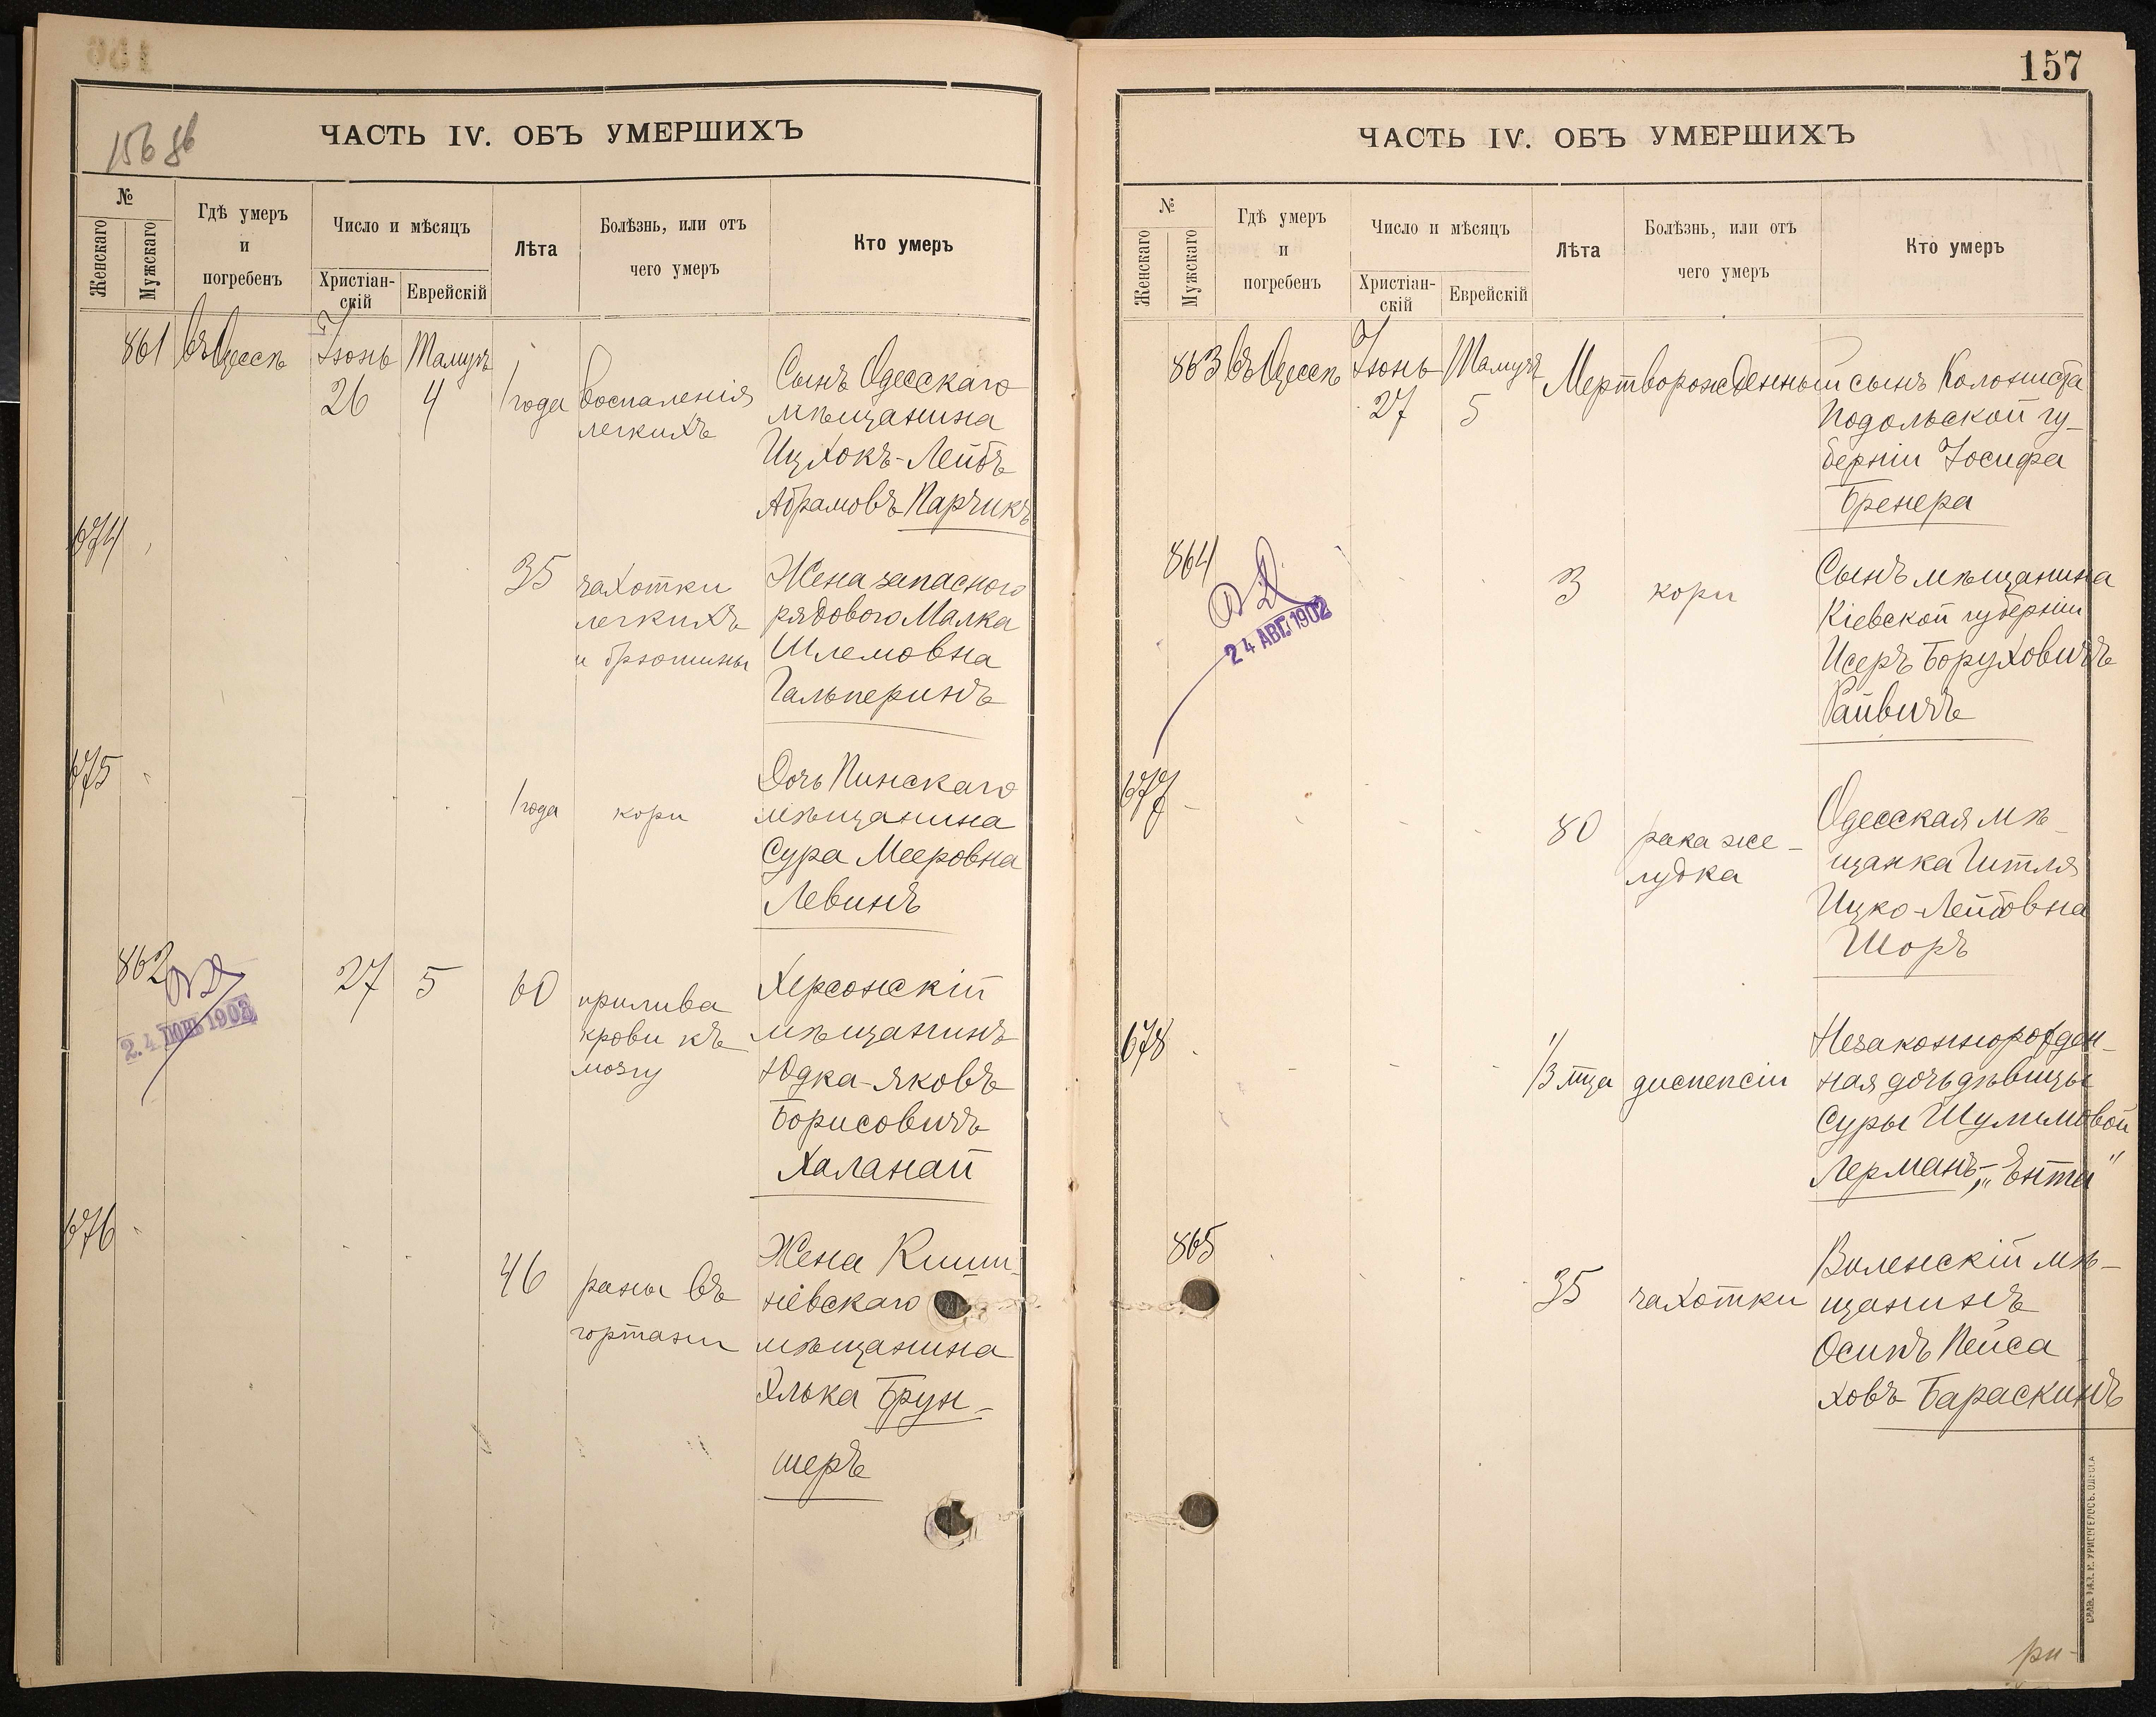 156 об
ЧАСТЬ IV. ОБЪ УМЕРШИХЪ
№
Женскаго
Мужскаго
Гдѣ умеръ
и
погребенъ
Число и мѣсяцъ
Христіан-
скій
Еврейскій
Лѣта
Болѣзнь, или отъ
чего умеръ
Кто умеръ
861 въ Одессѣ Іюнь Тамузъ
26 4 1 года воспаленія
легкихъ
Сынъ Одесскаго
мѣщанина
Ицхокъ-Лейбъ
Абрамовъ Парчикъ
674
35 чахотки
легкихъ
и брюшины
Жена запасного
рядового Малка
Шлемовна
Гальперинъ
675
1 года кори
Дочь Пинскаго
мѣщанина
Сура Мееровна
Левинъ
862
24 ІЮНЬ 1903
27 5 60 прилива
крови къ
мозгу
Херсонскій
мѣщанинъ
Юдка-Яковъ
Борисовичъ
Халанай
676
46 раны въ
гортани
Жена Киши-
нёвскаго
мѣщанина
Элька Брун-
шеръ
157
ЧАСТЬ IV. ОБЪ УМЕРШИХЪ
№
Женскаго
Мужскаго
Гдѣ умеръ
и
погребенъ
Число и мѣсяцъ
Христіан-
скій
Еврейскій
Лѣта
Болѣзнь, или отъ
чего умеръ
Кто умеръ
863 въ Одессѣ Іюнь Тамузъ
27 5
Мертворожденный сынъ Колониста
Подольской гу-
берніи Іосифа
Бренера
864
24 АВГ. 1902
3 кори
Сынъ мѣщанина
Кіевской губерніи
Исеръ Боруховичъ
Райвичъ
677
80 рака же-
лудка
Одесская мѣ-
щанка Гитля
Ицко-Лейбовна
Шоръ
678
1/3 мца диспепсіи
Незаконнорожден-
ная дочь дѣвицы
Суры Шулимовой
Лерманъ, „Ента"
865
35 чахотки
Виленскій мѣ-
щанинъ
Осипъ Пейса
ховъ Бараскинъ
ри-